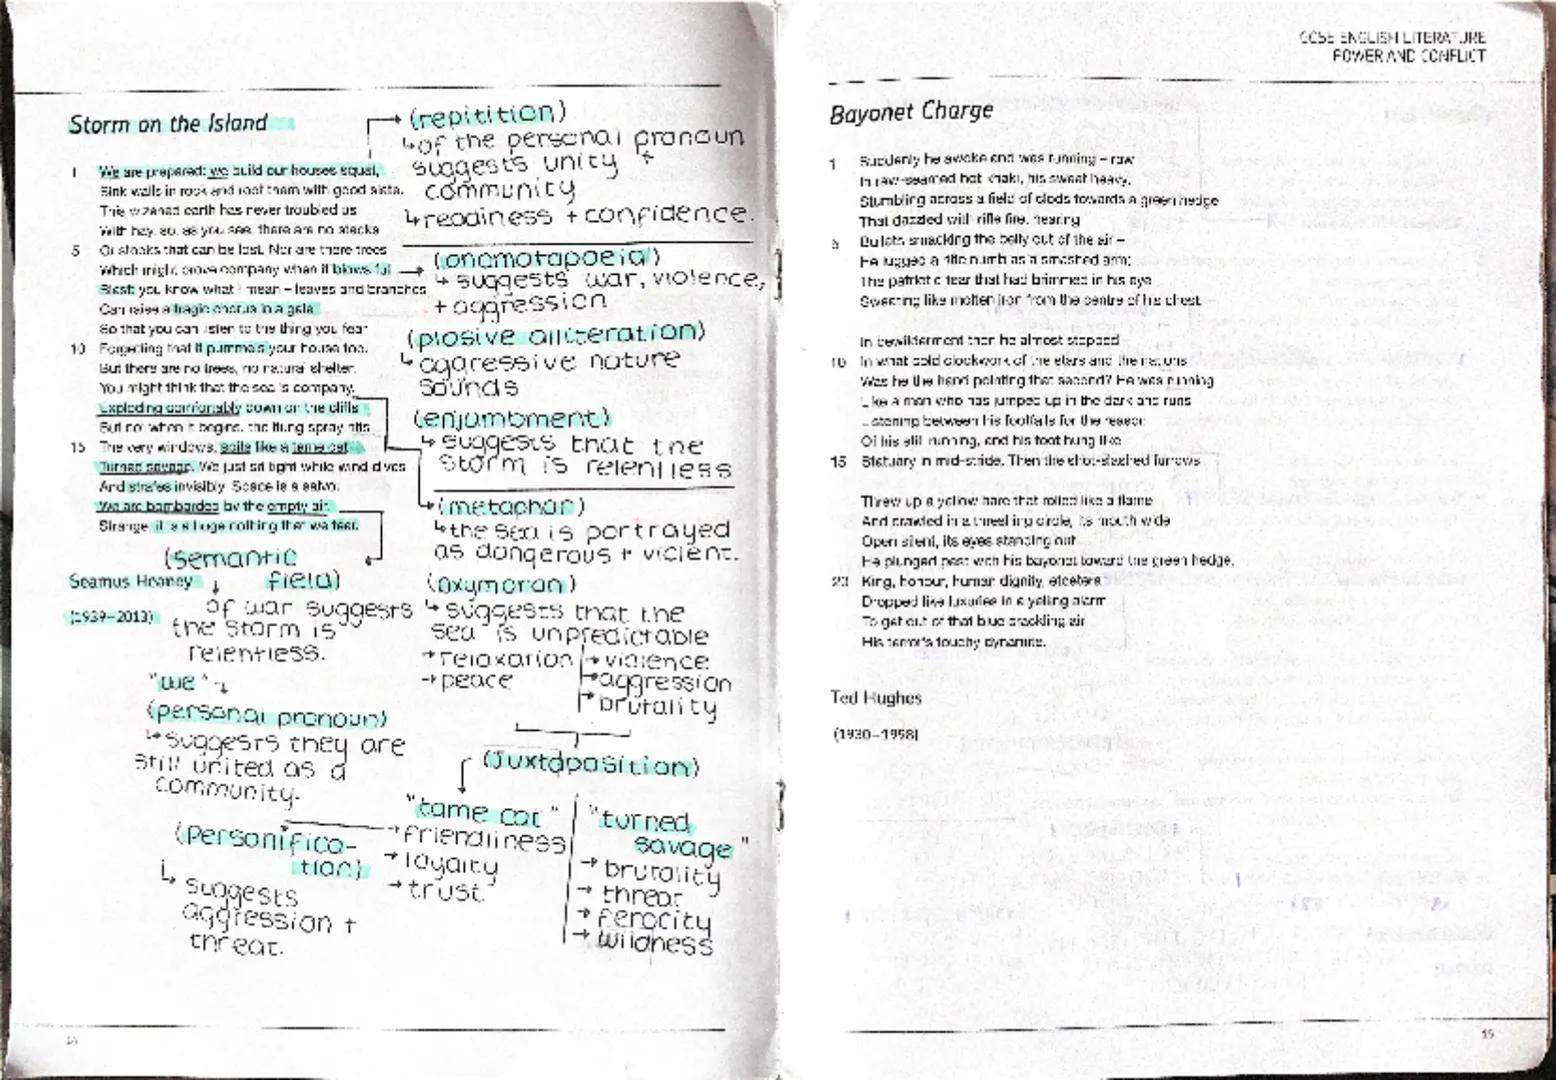 Storm on the Island
1 We are prepared: we build our houses squat,
Sink walls in rock and roof them with good slate.
This wizened earth has never troubled us
With hay, so, as you see, there are no stacks
5 Or stooks that can be lost. Nor are there trees
Which might prove company when it blows full
Blast: you know what I mean – leaves and branches
Can raise a tragic chorus in a gale
So that you can listen to the thing you fear
10 Forgetting that it pummels your house too.
But there are no trees, no natural shelter.
You might think that the sea is company,
Exploding comfortably down on the cliffs
But no: when it begins, the flung spray hits
15 The very windows, spits like a tame cat
Turned savage. We just sit tight while wind dives
And strafes invisibly. Space is a salvo.
We are bombarded by the empty air.
Strange, it is a huge nothing that we fear.
Seamus Heaney
(1939–2013)
(repitition)
↳of the personal pronoun
suggests unity +
community
↳readiness + confidence.
(onomotapoeia)
↳ suggests war, violence,
+ aggression
(plosive alliteration)
↳ aggressive nature
sounds
(enjambment)
↳ suggests that the
storm is relentless
(metaphor)
↳the sea is portrayed
as dangerous + violent.
(oxymoron)
↳ suggests that the
sea is unpredictable
→relaxation
→peace
→violence
→aggression
→brutality
(semantic
field)
of war suggests
the storm is
relentless.
"we"
(personal pronoun)
↳suggests they are
still united as a
community.
(personifica-
tion)
↳ suggests
aggression +
threat.
(Juxtaposition)
"tame cat"
→friendliness
→loyalty
→trust
"turned
savage"
→ brutality
→ threat
→ ferocity
→ wildness
14
GCSE ENGLISH LITERATURE
POWER AND CONFLICT
Bayonet Charge
1 Suddenly he awoke and was running – raw
In raw-seamed hot khaki, his sweat heavy,
Stumbling across a field of clods towards a green hedge
That dazzled with rifle fire, hearing
5 Bullets smacking the belly out of the air –
He lugged a rifle numb as a smashed arm;
The patriotic tear that had brimmed in his eye
Sweating like molten iron from the centre of his chest,
In bewilderment then he almost stopped –
10 In what cold clockwork of the stars and the nations
Was he the hand pointing that second? He was running
Like a man who has jumped up in the dark and runs
Listening between his footfalls for the reason
Of his still running, and his foot hung like
15 Statuary in mid-stride. Then the shot-slashed furrows
Threw up a yellow hare that rolled like a flame
And crawled in a threshing circle, its mouth wide
Open silent, its eyes standing out.
He plunged past with his bayonet toward the green hedge,
20 King, honour, human dignity, etcetera
Dropped like luxuries in a yelling alarm
To get out of that blue crackling air
His terror's touchy dynamite.
Ted Hughes
(1930–1998)
15